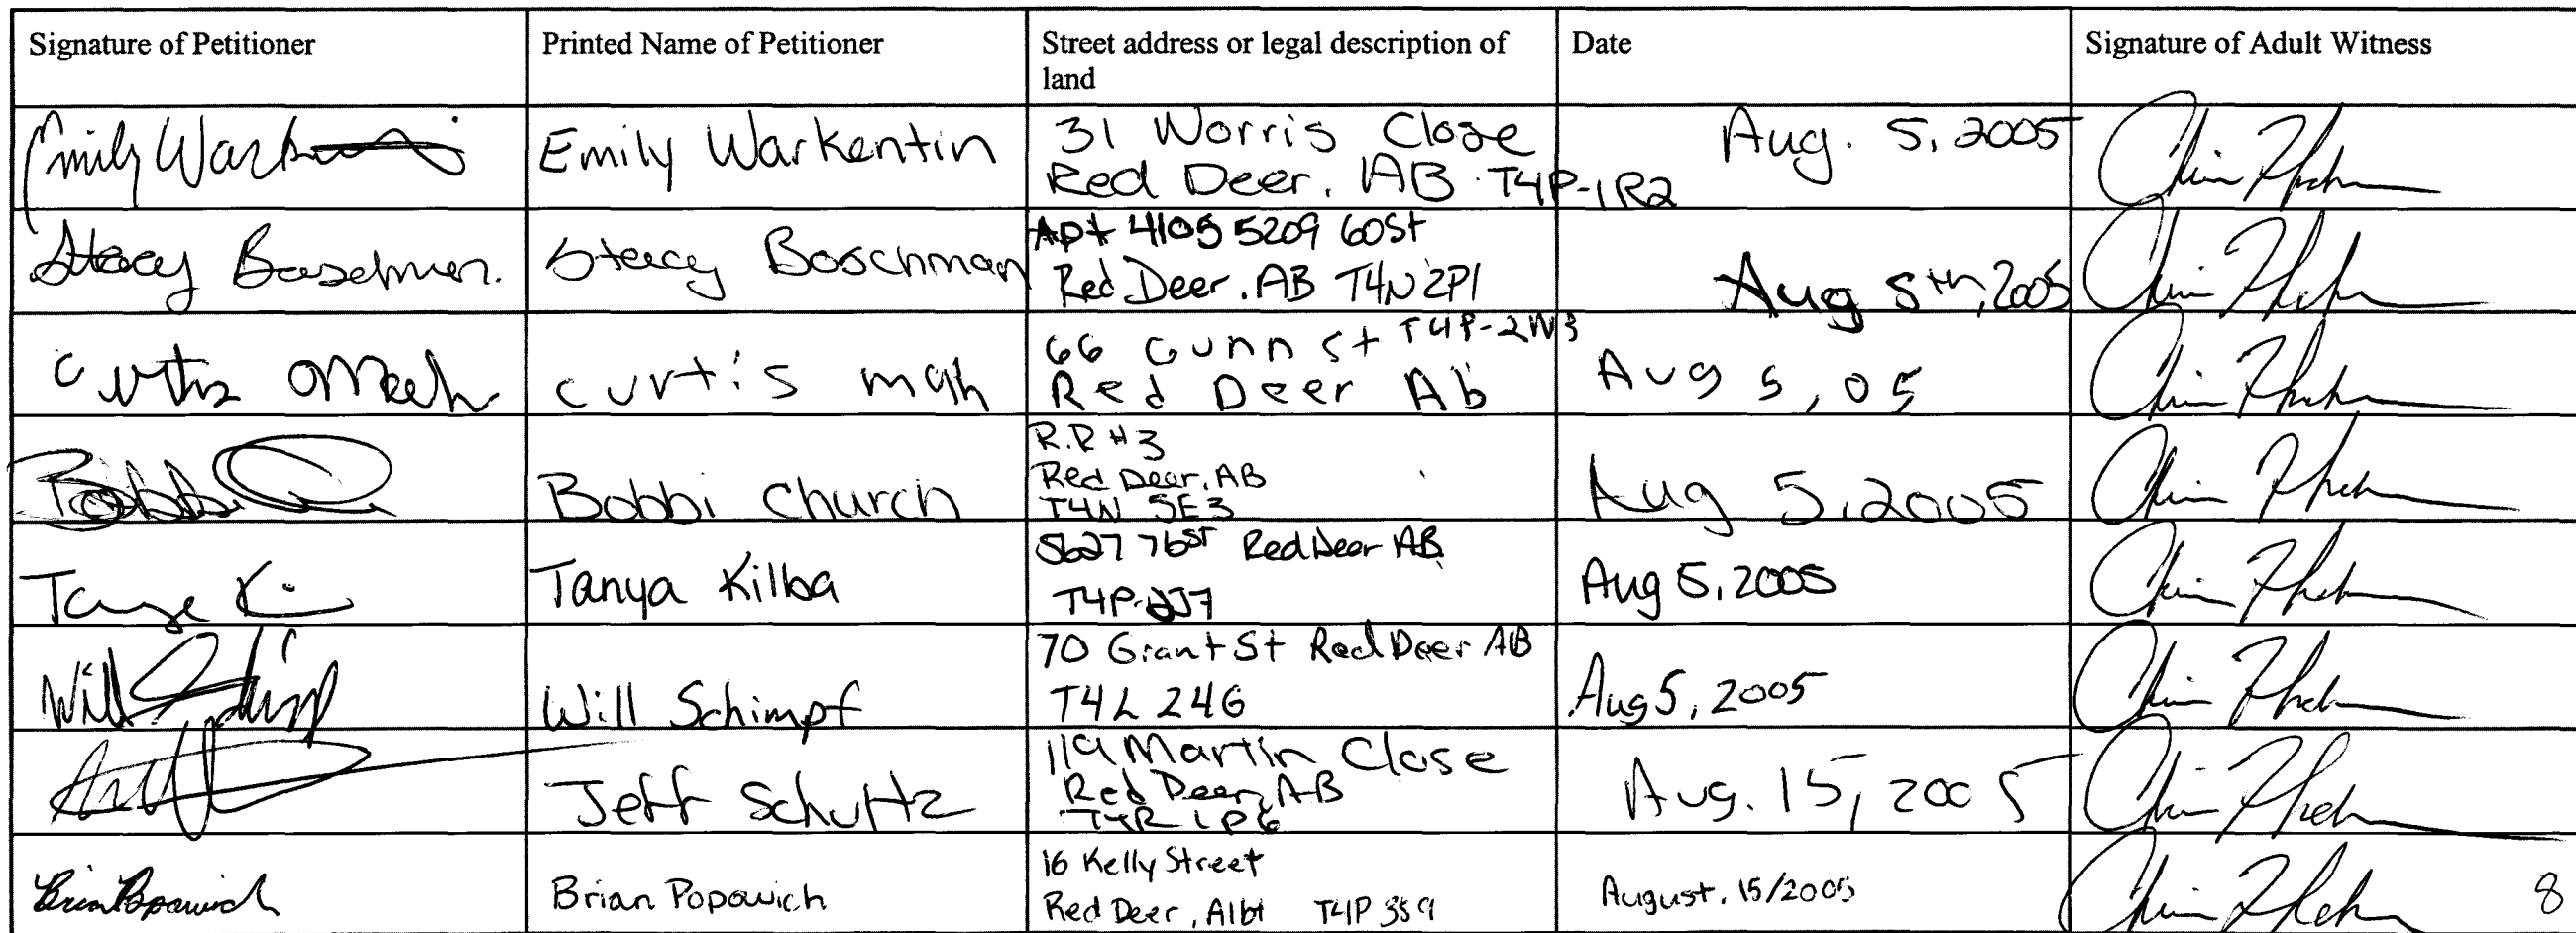 Signature of Petitioner
Printed Name of Petitioner
Street address or legal description of
land
Date
Signature of Adult Witness
Emily Warkentin
Emily Warkentin
31 Worris Close
Red Deer, AB T4P-1R2
Aug. 5, 2005
Stacy Boschman
Stacy Boschman
Apt 4105 5209 60St
Red Deer, AB T4N 2P1
Aug 5th, 2005
Curtis
curtis
66 Gunn St T4P-2W3
Red Deer Ab
Aug 5, 05
Bobbi
Bobbi Church
R.R #3
Red Deer, AB
T4N 5E3
Aug 5, 2005
Tanya
Tanya Kilba
5627 76ST Red Deer AB
T4P-2J7
Aug 5, 2005
Will
Will Schimpf
70 Grant St Red Deer AB
T4L 246
Aug 5, 2005
Jeff Schultz
119 Martin Close
Red Deer, AB
T4R 1P6
Aug. 15, 2005
Brian Popowich
Brian Popowich
16 Kelly Street
Red Deer, Albt T4P 3S9
August. 15/2005
8